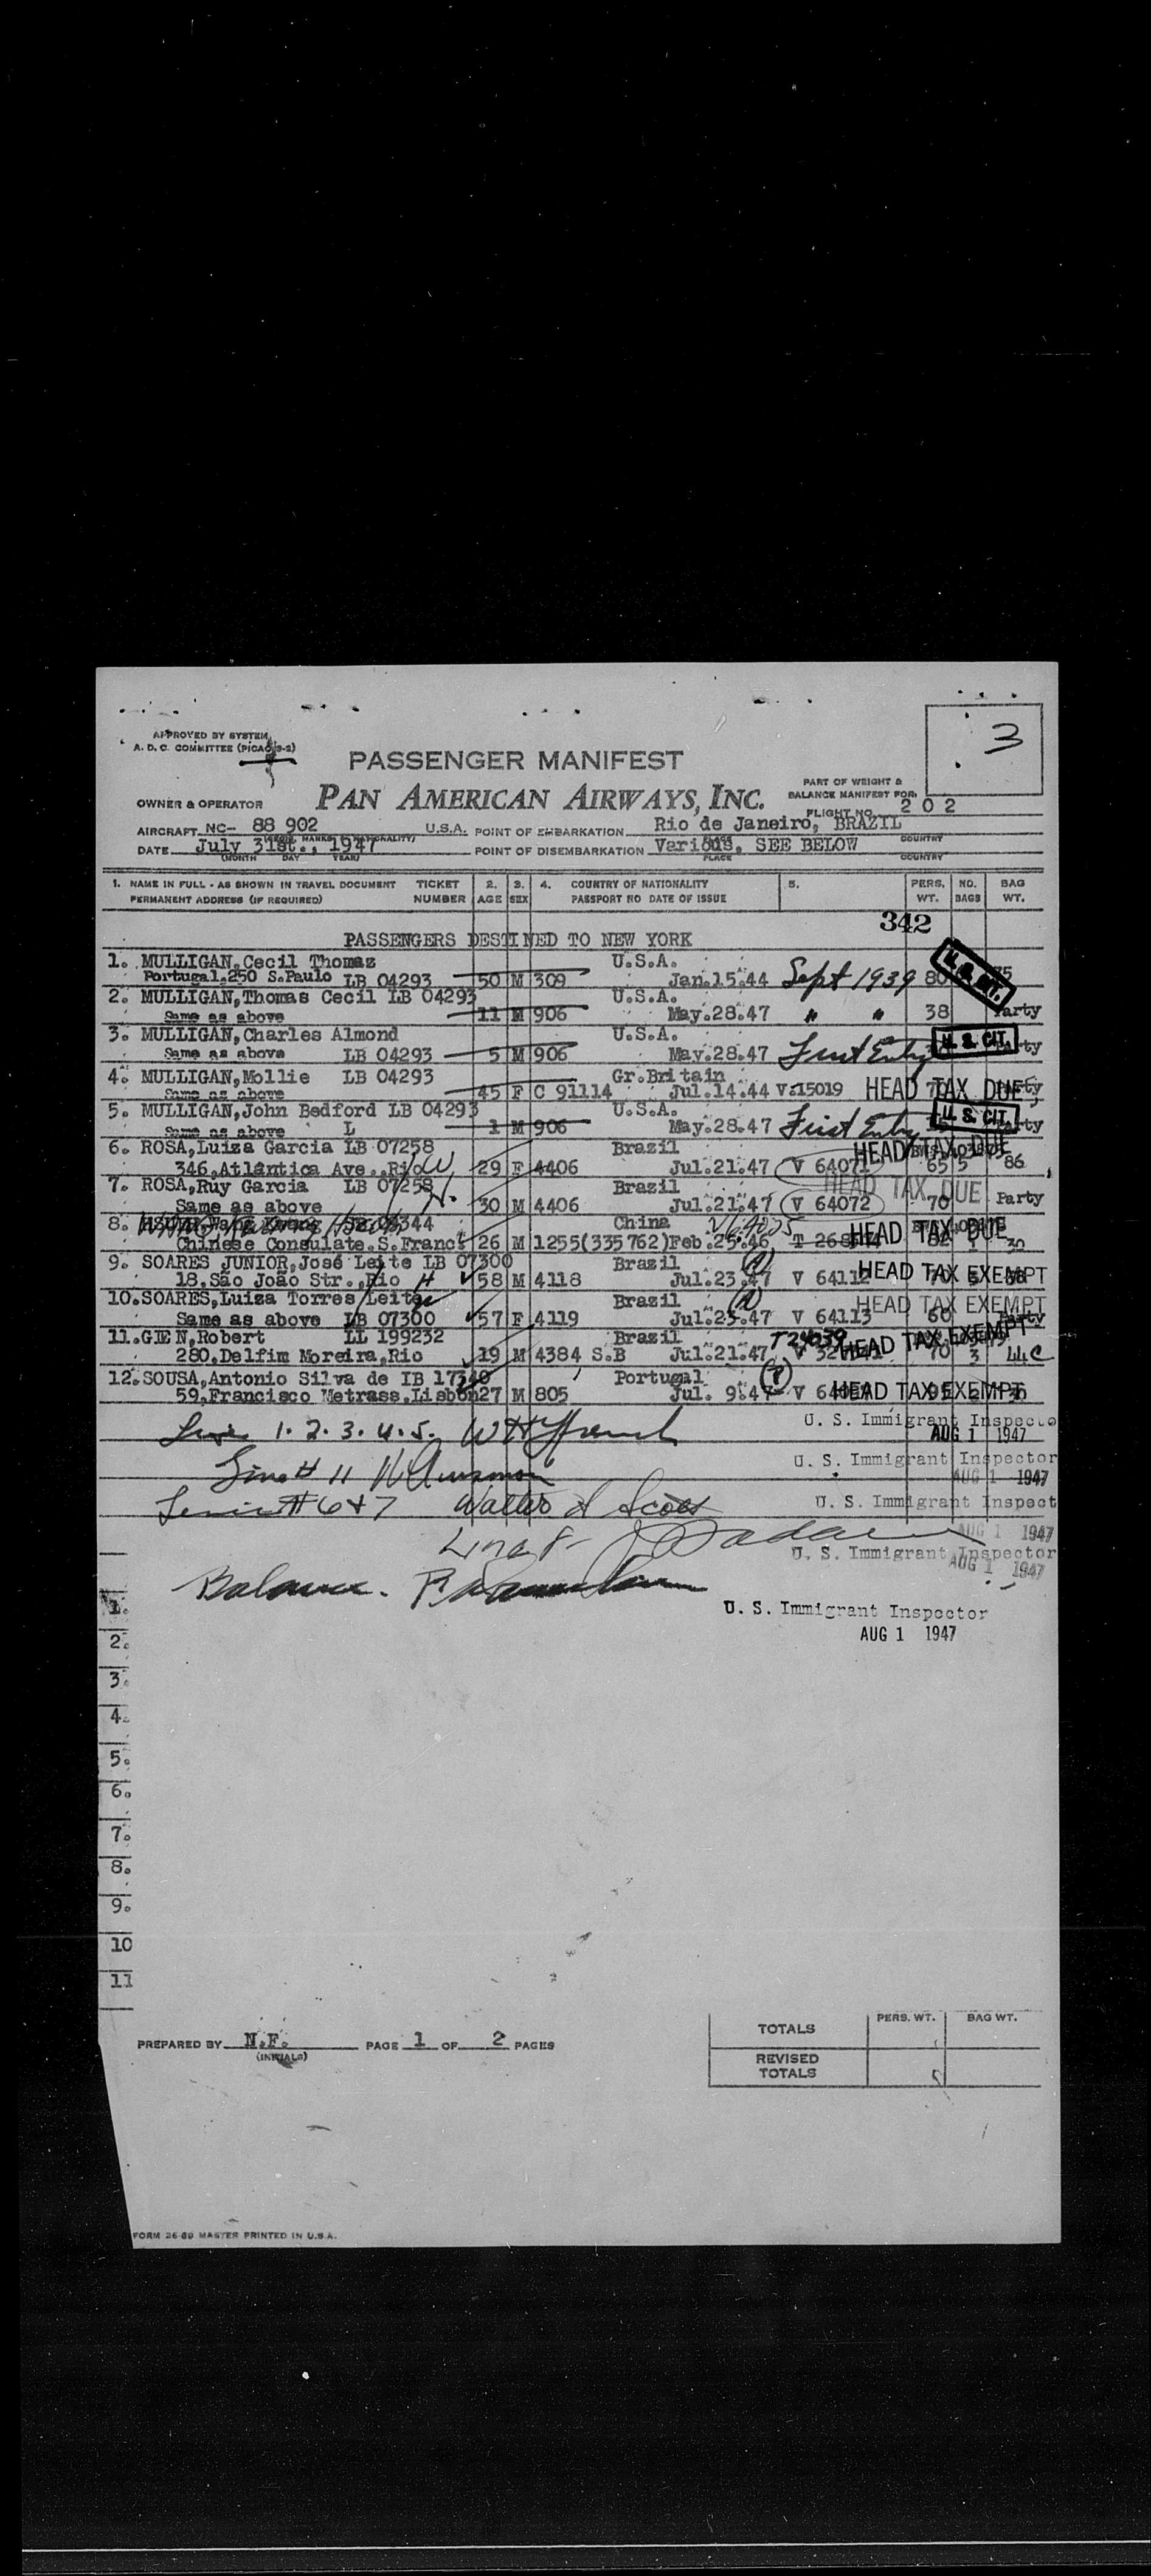 3
APPROVED BY SYSTEM
A. D. C. COMMITTEE (PICAO 9-2)
PASSENGER MANIFEST
PART OF WEIGHT &
BALANCE MANIFEST FOR,
OWNER & OPERATOR PAN AMERICAN AIRWAYS, INC.
FLIGHT NO. 202
AIRCRAFT NC- 88 902 U.S.A. POINT OF EMBARKATION Rio de Janeiro, BRAZIL
PLACE COUNTRY
DATE July 31st., 1947 POINT OF DISEMBARKATION Various, SEE BELOW
(MONTH DAY YEAR) PLACE COUNTRY
1. NAME IN FULL - AS SHOWN IN TRAVEL DOCUMENT TICKET 2. 3. 4. COUNTRY OF NATIONALITY 5. PERS. NO. BAG
PERMANENT ADDRESS (IF REQUIRED) NUMBER AGE SEX PASSPORT NO DATE OF ISSUE WT. BAGS WT.
342
PASSENGERS DESTINED TO NEW YORK
1. MULLIGAN, Cecil Thomaz U.S.A.
Portugal.250 S.Paulo LB 04293 50 M 309 Jan.15.44 Sept 1939
2. MULLIGAN, Thomas Cecil LB 04293 U.S.A.
Same as above 11 M 906 May.28.47 " " 38 Party
3. MULLIGAN, Charles Almond U.S.A. U. S. CIT.
Same as above LB 04293 5 M 906 May.28.47 First Entry
4. MULLIGAN, Mollie LB 04293 Gr.Britain
Same as above 45 F C 91114 Jul.14.44 V.15019 HEAD TAX DUE
5. MULLIGAN, John Bedford LB 04293 U.S.A. U. S. CIT.
Same as above L 1 M 906 May.28.47 First Entry
6. ROSA, Luiza Garcia LB 07258 Brazil HEAD TAX DUE
346, Atlântica Ave., Rio 29 F 4406 Jul.21.47 V 64071 65 5 86
7. ROSA, Ruy Garcia LB 07258 Brazil HEAD TAX DUE
Same as above 30 M 4406 Jul.21.47 V 64072 70 Party
8. China
Chinese Consulate.S.Franc 26 M 1255(335762)Feb.25.46 HEAD TAX DUE 30
9. SOARES JUNIOR, José Leite LB 07300 Brazil
18, São João Str., Rio 58 M 4118 Jul.23.47 V 64112 HEAD TAX EXEMPT
10. SOARES, Luiza Torres Leite Brazil HEAD TAX EXEMPT
Same as above LB 07300 57 F 4119 Jul.23.47 V 64113 60 Party
11. GIEN, Robert LL 199232 Brazil T24039 HEAD TAX EXEMPT
280, Delfim Moreira, Rio 19 M 4384 S.B Jul.21.47 70 3 44
12. SOUSA, Antonio Silva de IB 17340 Portugal
59, Francisco Metrass, Lisbon 27 M 805 Jul. 9.47 HEAD TAX EXEMPT
1. 2. 3. 4. 5. U. S. Immigrant Inspector
AUG 1 1947
Line # 11 U. S. Immigrant Inspector
AUG 1 1947
# 6 & 7 Walter Scott U. S. Immigrant Inspect
AUG 1 1947
Line 8 U. S. Immigrant Inspector
AUG 1 1947
Balance.
1. U. S. Immigrant Inspector
AUG 1 1947
2.
3.
4.
5.
6.
7.
8.
9.
10
11
PERS. WT. BAG WT.
TOTALS
PREPARED BY N.F. PAGE 1 OF 2 PAGES
(INITIALS)
REVISED
TOTALS
FORM 26-69 MASTER PRINTED IN U.S.A.